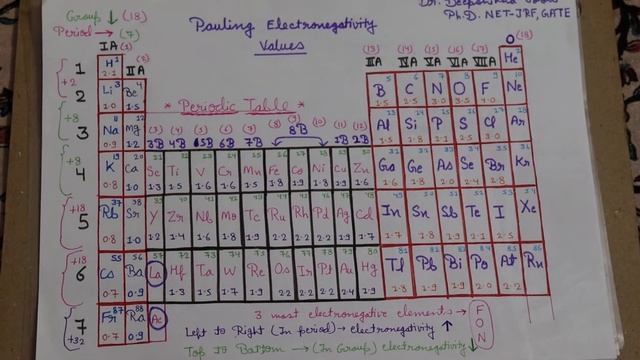 Group ↓ (18)
Pauling Electronegativity
Ph.D. NET-JRF, GATE
Period → (7)
Values
IA (1)
O (18)
(2)
IIA
(13) (14) (15) (16) (17)
IIIA IVA VA VIA VIIA
1 H 1 2.1 He 2
+2
2 Li 3 1.0 Be 4 1.5 B 5 C 6 2.5 N 7 3.0 O 8 3.5 F 9 4.0 Ne 10
* Periodic Table *
+8
3 Na 11 0.9 Mg 12 1.2 Al 13 1.5 Si 14 1.8 P 15 2.1 S 16 2.5 Cl 17 3.0 Ar 18
(3) (4) (5) (6) (7) (8) (9) (10) (11) (12)
3B 4B 5B 6B 7B 8B 1B 2B
+8
4 K 19 0.8 Ca 20 1.0 Sc 21 1.3 Ti 22 1.5 V 23 1.6 Cr 24 1.6 Mn 25 1.5 Fe 26 1.8 Co 27 1.9 Ni 28 1.9 Cu 29 1.9 Zn 30 1.6 Ga 31 1.6 Ge 32 1.8 As 33 2.0 Se 34 2.4 Br 35 2.8 Kr 36
+18
5 Rb 37 0.8 Sr 38 1.0 Y 1.2 Zr 1.4 Nb 1.6 Mo 1.8 Tc 1.9 Ru 2.2 Rh 2.2 Pd 2.2 Ag 1.9 Cd 1.7 In 1.7 Sn 1.8 Sb 1.9 Te 2.1 I 2.5 Xe 54
+18
6 Cs 55 0.7 Ba 56 0.9 La 57 Hf 72 1.3 Ta 73 1.5 W 74 1.7 Re 75 1.9 Os 76 2.2 Ir 77 2.2 Pt 78 2.2 Au 79 2.4 Hg 80 1.9 Tl 81 1.8 Pb 82 1.9 Bi 83 1.9 Po 84 2.0 At 85 2.2 Rn 86
7 Fr 87 0.7 Ra 88 0.9 Ac
+32
3 most electronegative elements → F O N
Left to Right (In period) → electronegativity ↑
Top to Bottom → (In Group) electronegativity ↓